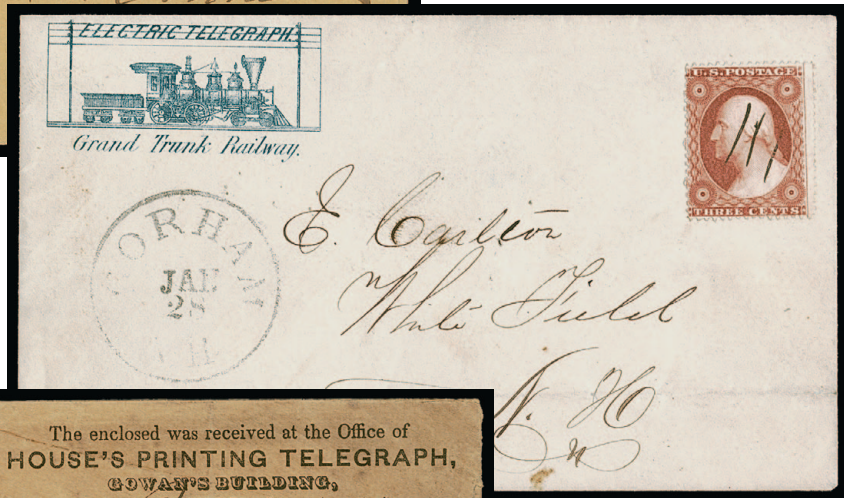 ELECTRIC TELEGRAPH.
Grand Trunk Railway.
U.S. POSTAGE
THREE CENTS
GORHAM
JAN
28
E. Carlton
White Field
N. H
The enclosed was received at the Office of
HOUSE'S PRINTING TELEGRAPH,
GOWAN'S BUILDING,